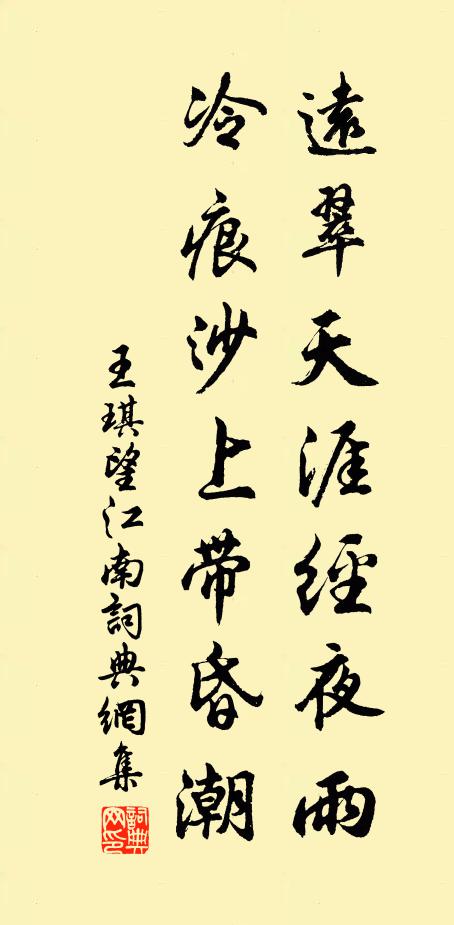 遠翠天涯經夜雨
冷痕沙上帶昏潮
王琪望江南詞典網集
詞典網印